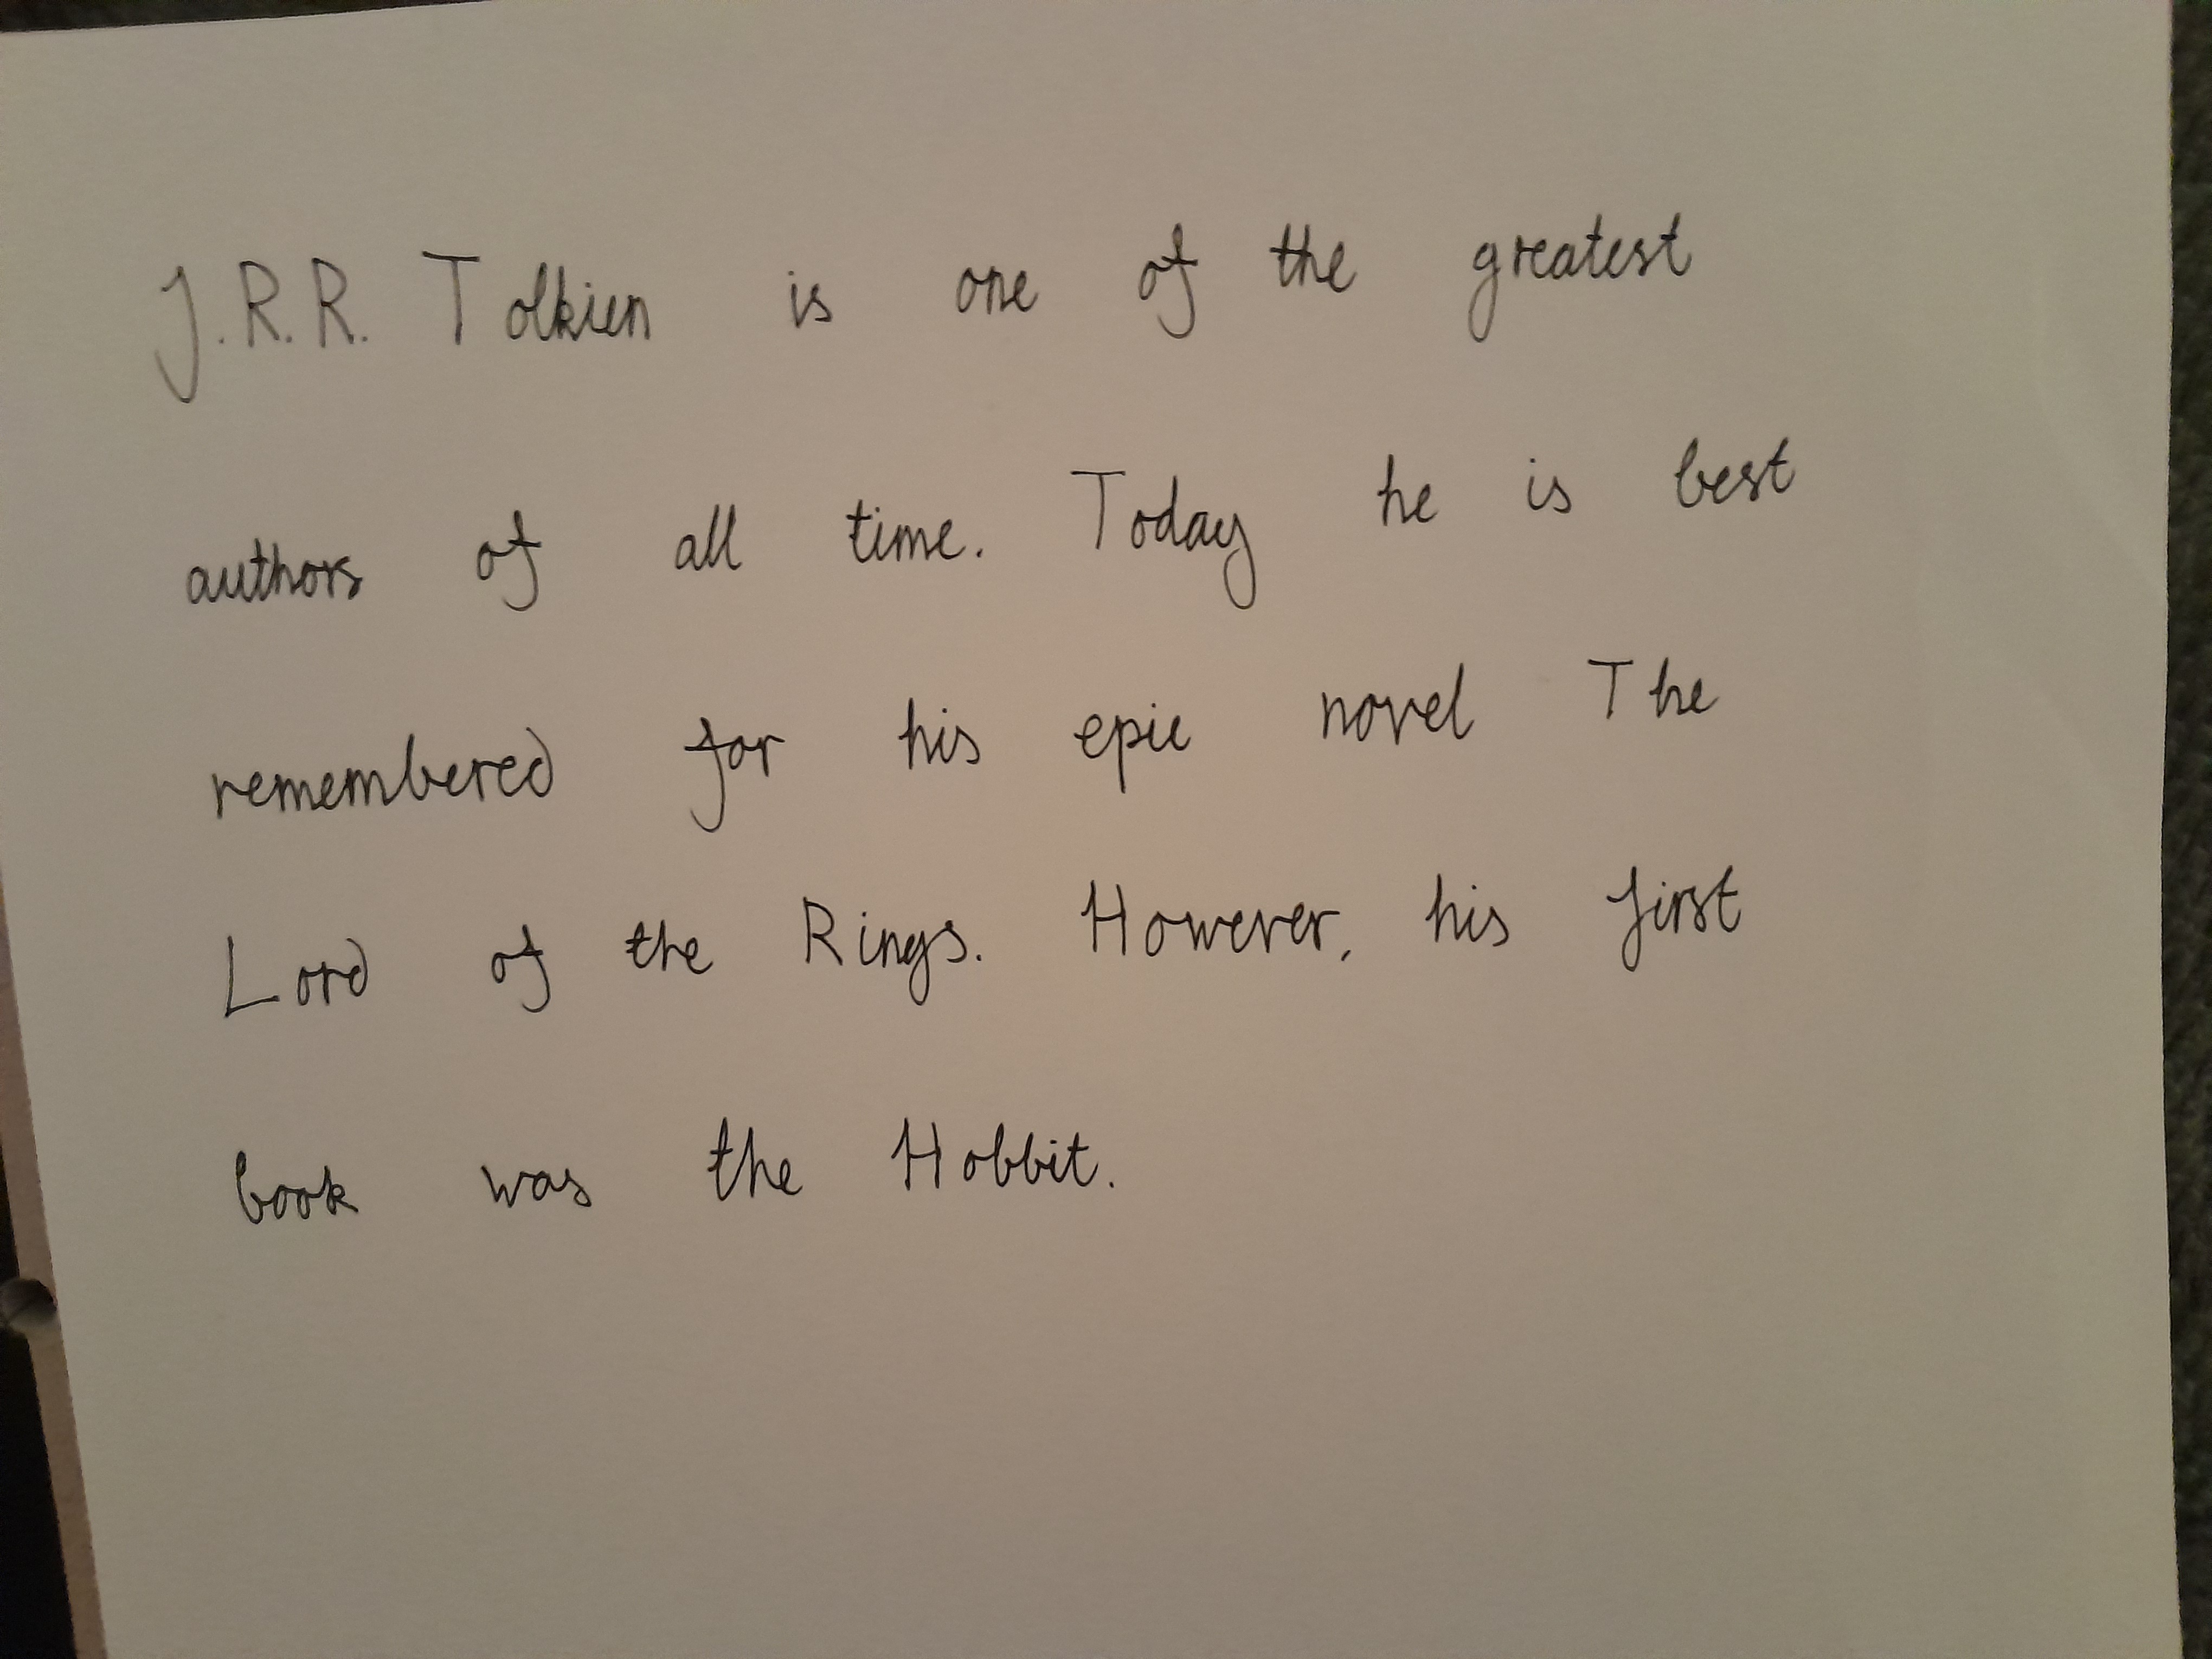 J.R.R. Tolkien is one of the greatest
authors of all time. Today he is best
remembered for his epic novel The
Lord of the Rings. However, his first
book was the Hobbit.